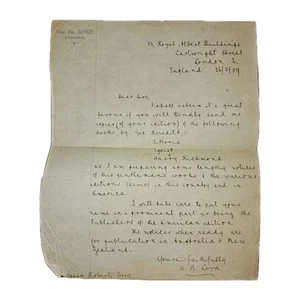 Royal Albert Buildings
Cartwright Street
London E.
England 26/2/89
Dear Sirs,
I shall esteem it a great
favour if you will kindly send me
copies (of your edition) of the following
books by Geo Meredith:
Vittoria
Egoist
Harry Richmond
as I am preparing some lengthy notices
of this gentleman's works & the various
editions thereof in this country and in
America.
I will take care to put your
name in a prominent part as being the
publishers of the American edition.
The notices when ready are
for publication in Australia & New
Zealand.
Yours faithfully
Roberts Bros.